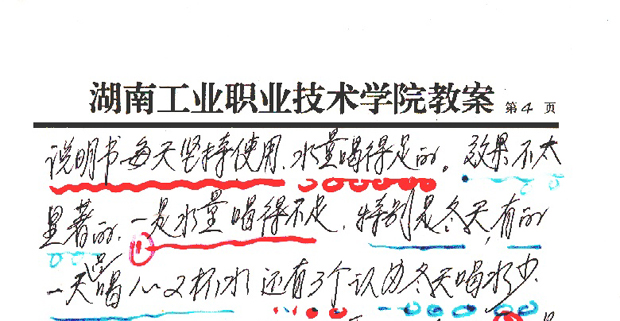 湖南工业职业技术学院教案 第4页
说明书每天坚持使用.水量喝得足的。效果不太
显著的.一是水量喝得不足.特别是冬天,有的
①
一天只喝1~2杯水 还有3个认为冬天喝水少.